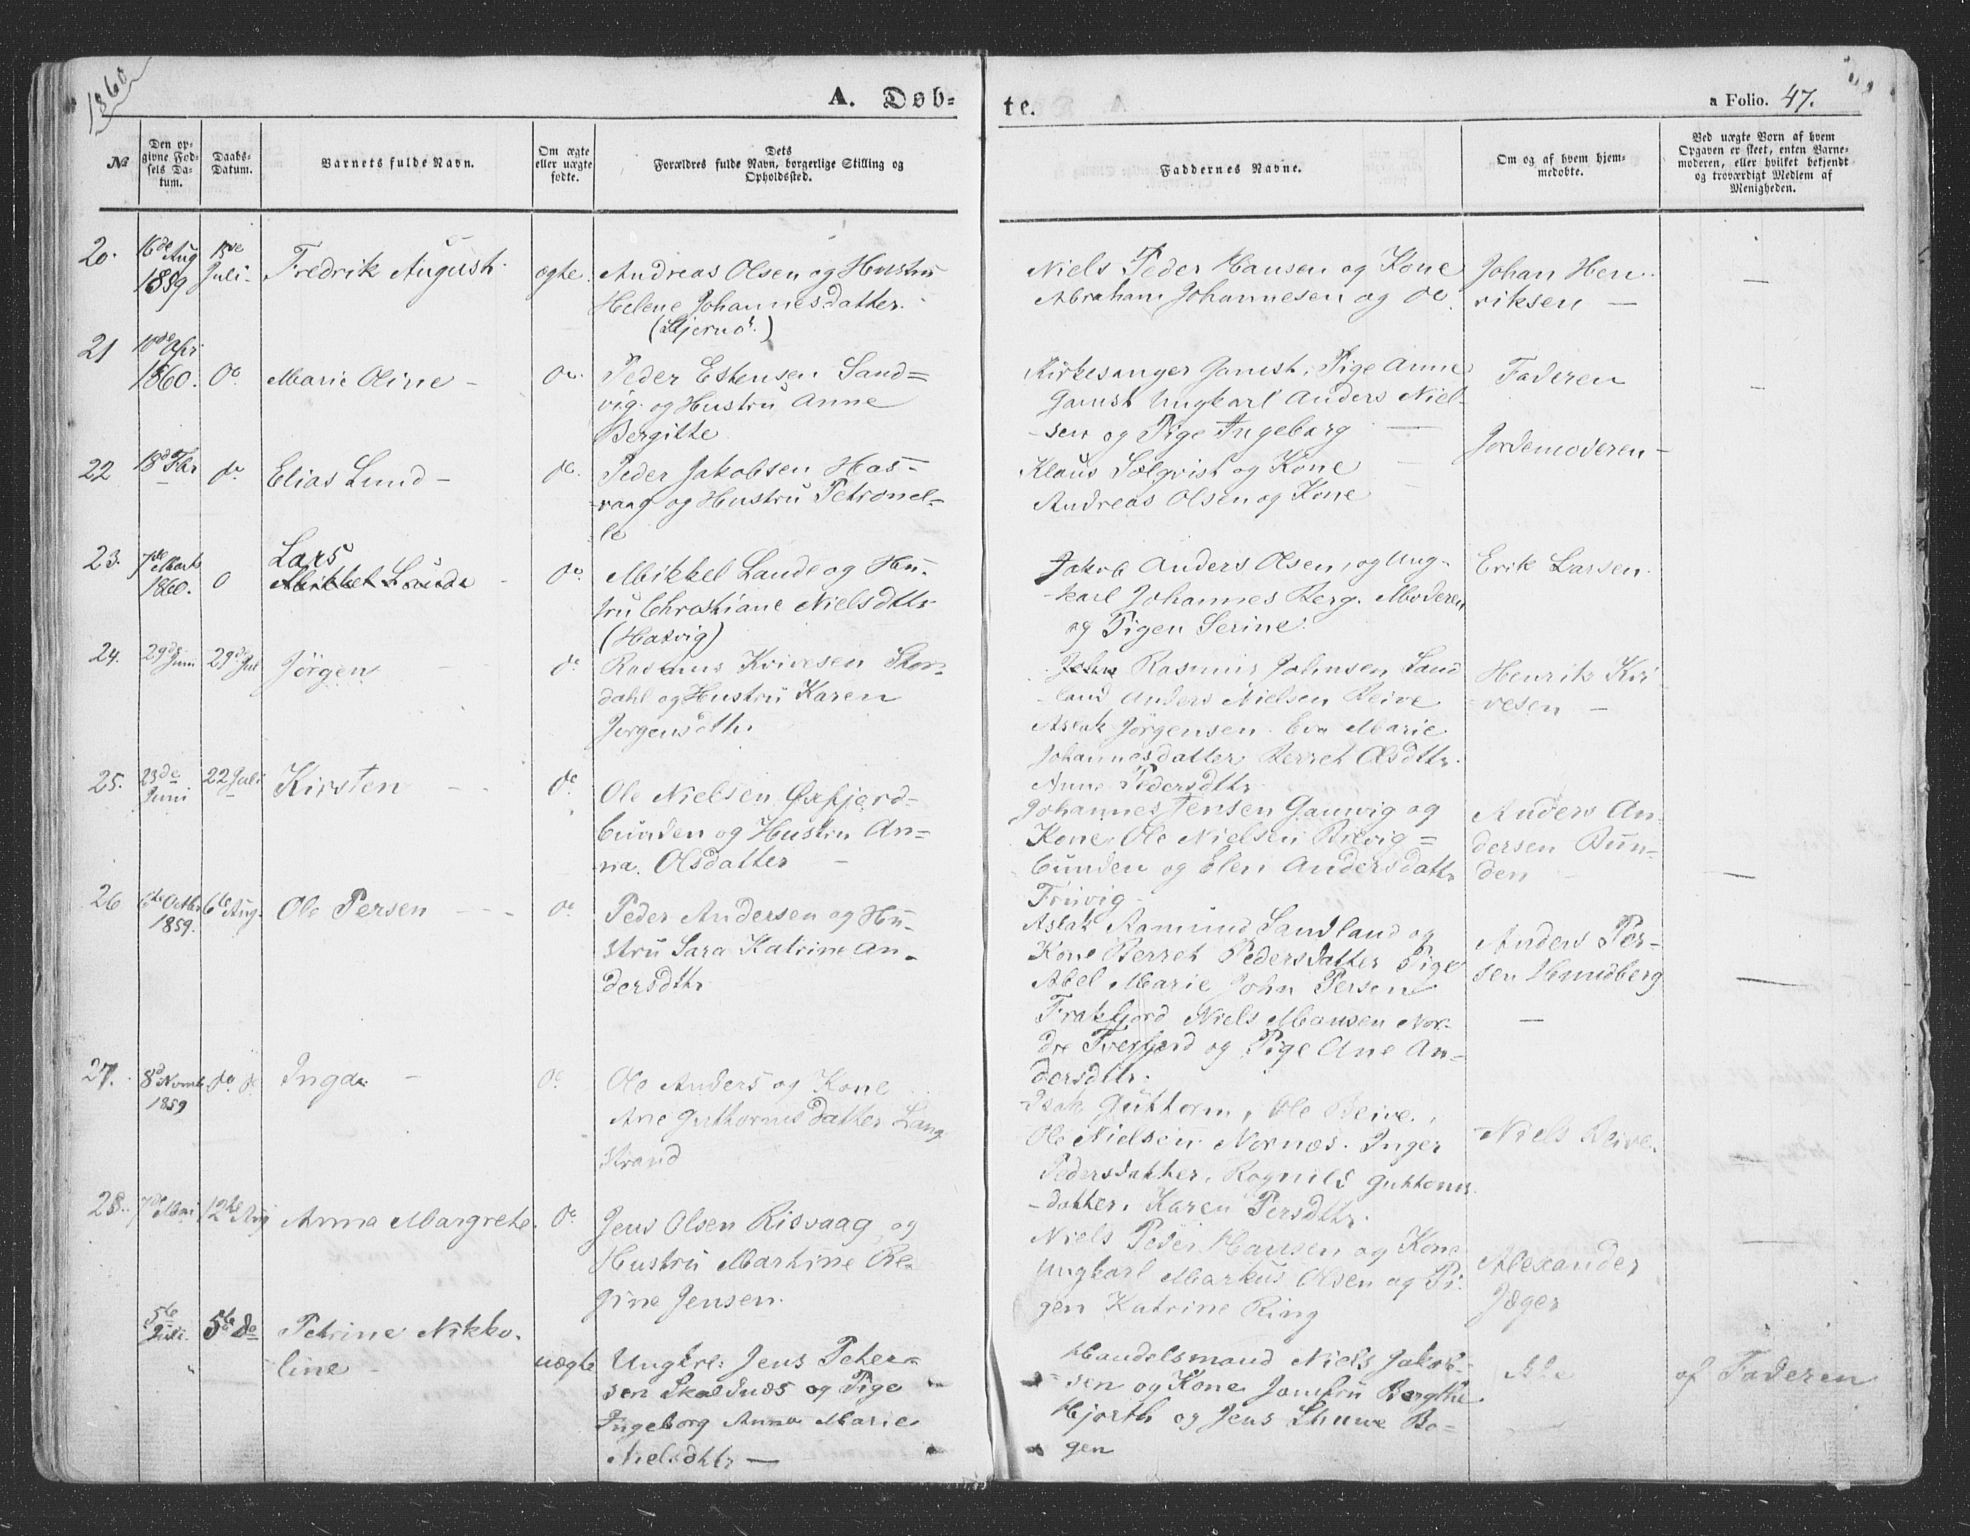 1860
A. Døb-
te.
a Folio. 47.
№
Den op-
givne Fød-
sels Da-
tum.
Daabs-
Datum.
Barnets fulde Navn.
Om ægte
eller uægte
fødte.
Dets
Forældres fulde Navn, borgerlige Stilling og
Opholdssted.
Faddernes Navne.
Om og af hvem hjem-
medøbte.
Ved uægte Børn af hvem
Opgaven er skeet, enten Barne-
moderen, eller hvilket bekjendt
og troværdigt Medlem af
Menigheden.
20.
16de Aug
1859
15de
Juli.
Fredrik August
ægte.
Andreas Olsen og Hustru
Helene Johannesdatter.
(Stjernö.)
Niels Peder Hansen og Kone
Abraham Johannesen og do
Johan Hen
riksen —
—
21
10de Apr
1860.
do.
Marie Oline —
do.
Peder Estensen Sand=
vig og Hustru Anne
Bergitte
Kirkesanger Gamst, Pige Anne
Gamst Ungkarl Anders Niel-
sen og Pige Ingeborg —
Faderen
—
22
18d Fbr
do.
Elias Lund —
do.
Peder Jakobsen Has-
vaag og Hustru Petronel-
le
Klaus Sølqvist og Kone
Andreas Olsen og Kone
Jordemoderen —
23.
7de Marts
1860.
Lars
Mikkel Lunde
do.
Mikkel Lunde og Hu.
stru Christiane Nielsdttr
(Hasvig)
Jakob Anders Olsen, og Ung-
karl Johannes Berg. Moderen
og Pigen Serine.
Erik Larsen.
24.
29de Juni
29de Jul
Jörgen
do
Rasmus Kvivesen Stor-
dahl og Hustru Karen
Jørgensdttr.
John Rasmus Johnsen Sand
land Anders Nielsen Reive
Aslak Jörgensen. Eva Marie
Johannesdatter, Berret Olsdttr.
Anne Pedersdttr
Henrik Kvi
vesen —
25.
23de
Juni
22 Juli
Kirsten
do
Ole Nielsen Øxfjord-
bunden og Hustru An-
na. Olsdatter —
Johannes Jensen Gamvig og
Kone, Ole Nielsen Brevig=
bunden og Elen Andersdattr
Fruvig
Anders An
dersen Bun-
den
—
26
6te Octbr
1859.
6te Aug.
Ole Persen
do
Peder Andersen og Hu-
stru Sara Katrine An-
dersdttr
Aslak Asmund Sandland og
Kone Berret Pedersdatter Pige
Abel Marie John Persen
Frakfjord Niels Mansen Nor-
dre Tverfjord og Pige Ane An-
dersdttr.
Anders Per-
sen Hundberg
—
—
27.
8d Novmb
1859
do do
Inga
do
Ole Anders og Kone
Ane Guttormsdatter Lang
strand
Isak Guttorm, Ole Reive.,
Ole Nielsen Nornæs. Inger
Pedersdatter, Ragnild Guttorms
-datter. Karen Persdttr.
Niels Reive.
28.
7de Mai
12te Aug
Anna Margrete.
do
Jens Olsen Risvaag, og
Hustru Martine Re-
gine Jensen.
Niels Peder Hansen og Kone
Ungkarl Markus Olsen og Pi
gen Katrine Ring
Alexander
Jæger
—
5te
Juli
5te do
Petrine Nikko-
line —
uægte
Ungkrl: Jens Peter-
sen Skaldnæs og Pige
Ingeborg Anna Marie
Nielsdttr —
Handelsmand Niels Jakob-
sen og Kone Jomfru Bergthe
Hjorth og Jens Stuwe Bo-
gen
af Faderen